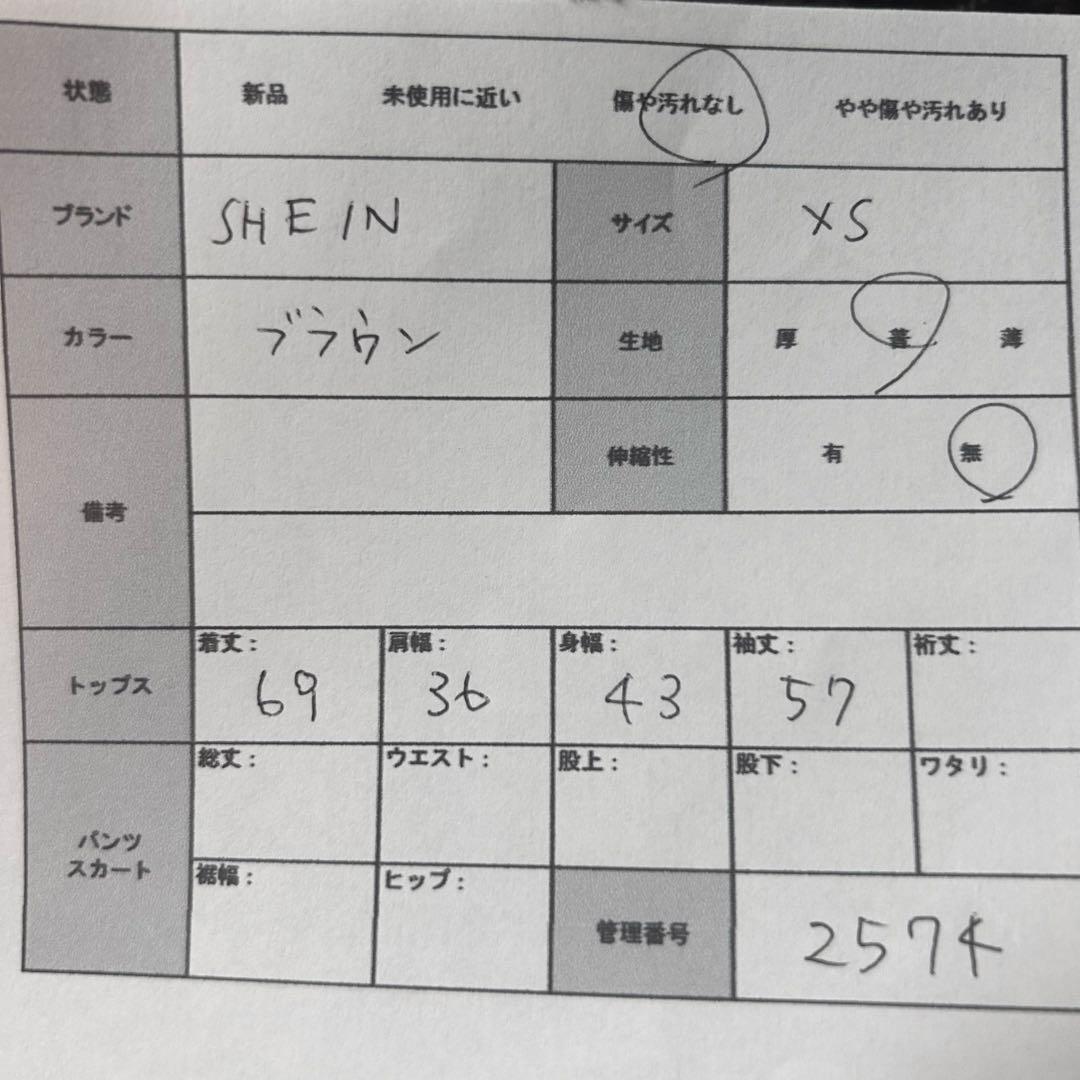 状態 新品 未使用に近い 傷や汚れなし やや傷や汚れあり
ブランド SHEIN サイズ XS
カラー ブラウン 生地 厚 普 薄
備考 伸縮性 有 無
トップス 着丈: 69 肩幅: 36 身幅: 43 袖丈: 57 裄丈:
パンツ スカート 総丈: ウエスト: 股上: 股下: ワタリ:
裾幅: ヒップ: 管理番号 2574